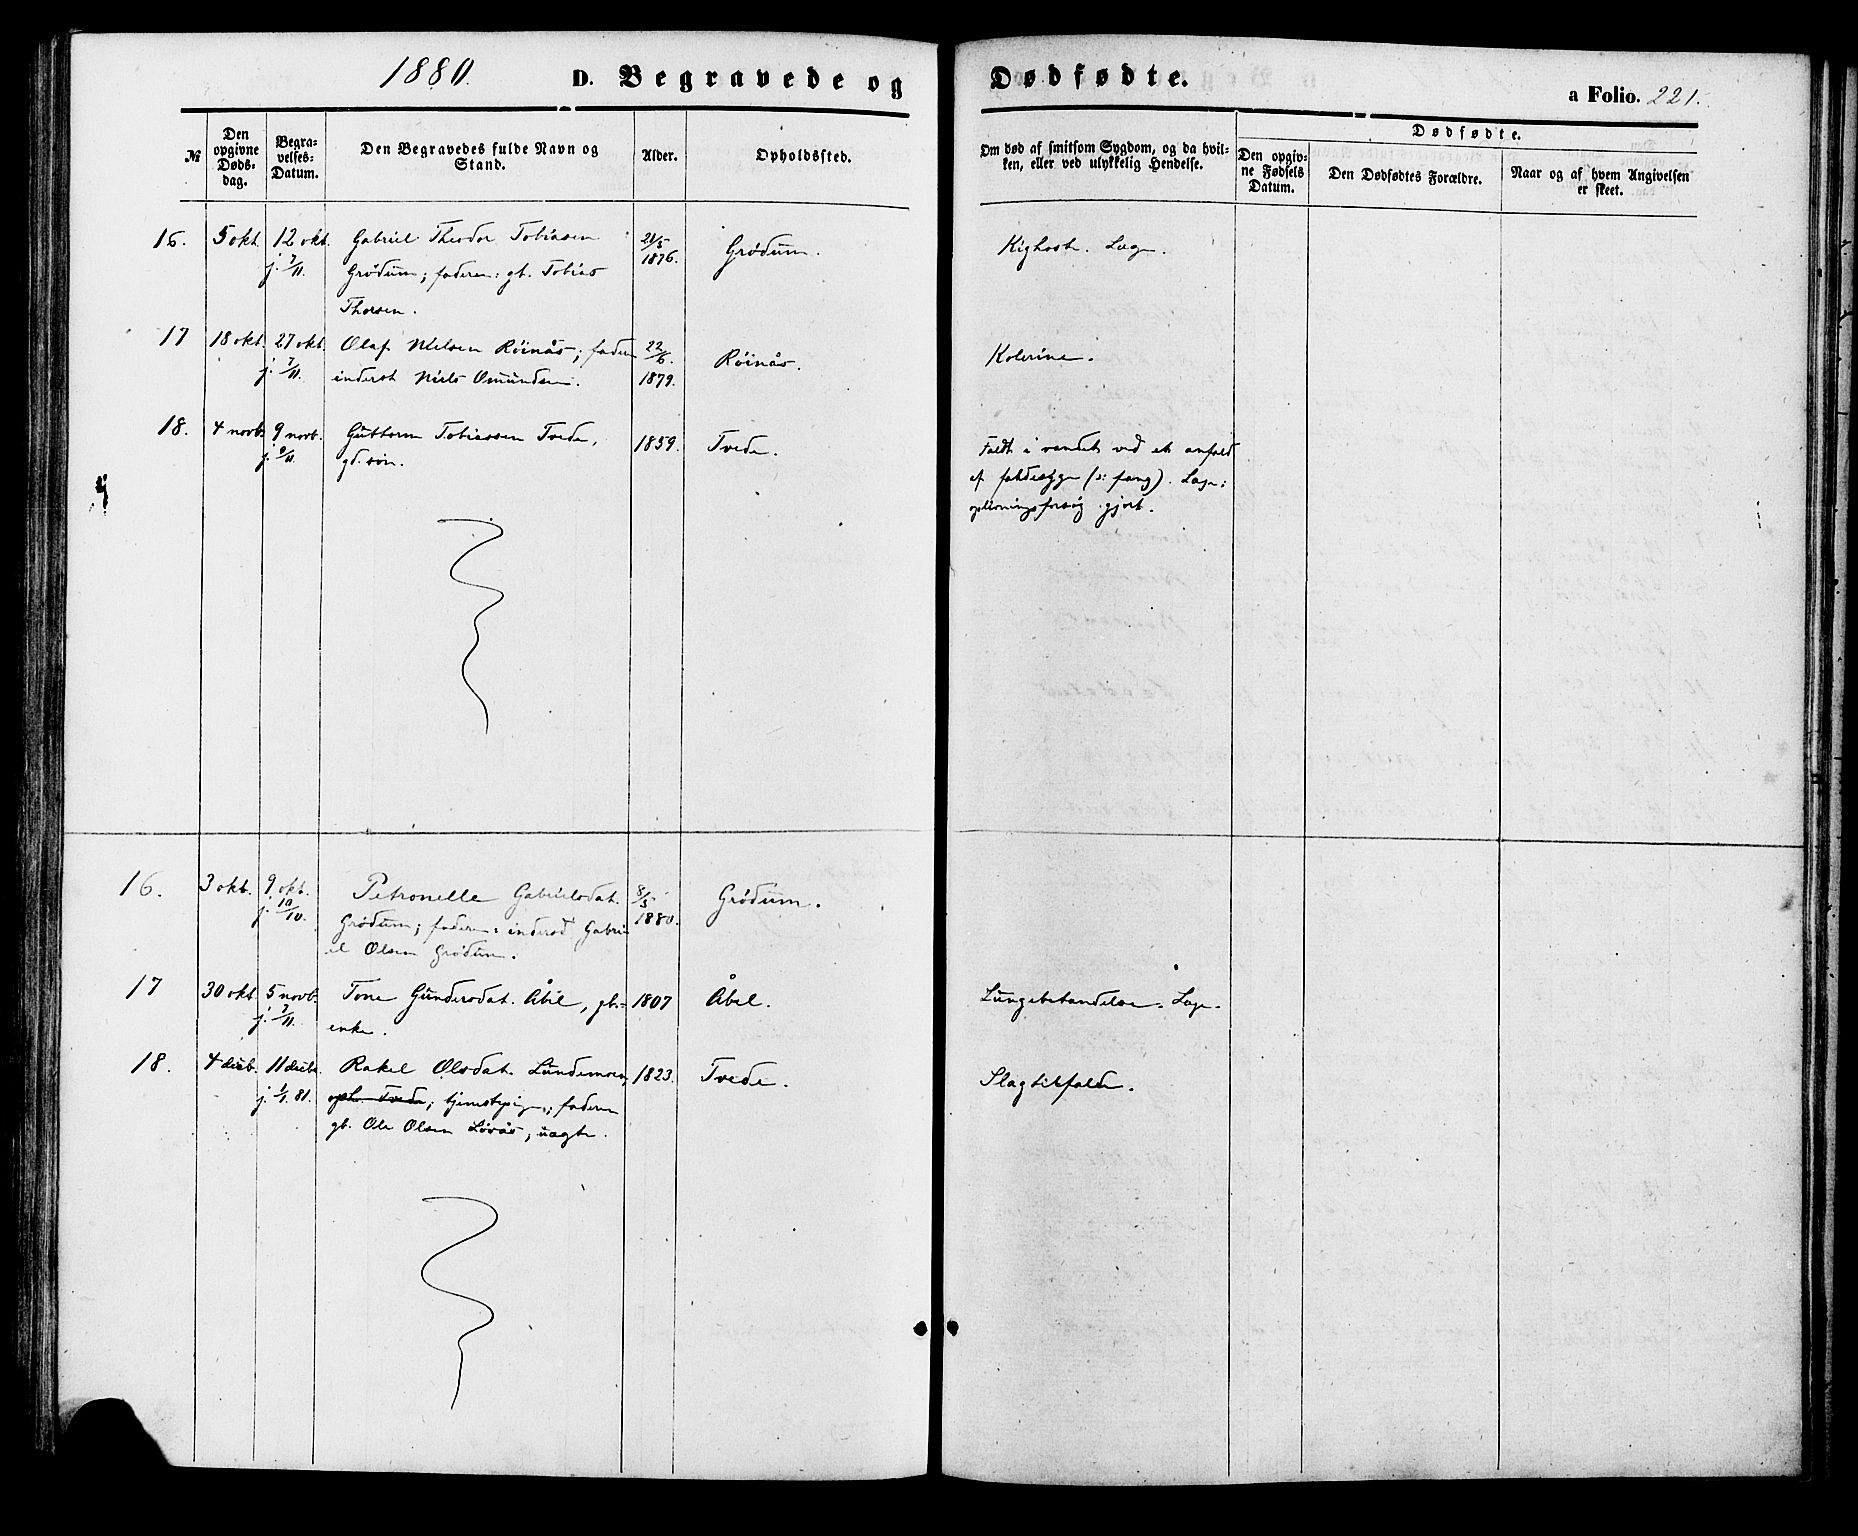 1880. D. Begravede og Dødfødte. a Folio. 221.
№ Den opgivne Døds-dag. Begra-velses-Datum. Den Begravedes fulde Navn og Stand. Alder. Opholdssted. Om død af smitsom Sygdom, og da hvil-ken, eller ved ulykkelig Hendelse. Dødfødte. Den opgiv-ne Fødsels Datum. Den Dødfødtes Forældre. Naar og af hvem Angivelsen er skeet.
16. 5 okt. 12 okt. Gabriel Theodor Tobiasen 21/5 1876. Grødum. Kighoste. Læge.
j. 7/11. Grødum; faderen: gb. Tobias
Thorsen.
17 18 okt. 27 okt. Olaf Nielsen Röinås; fader 22/6. 1879. Röinås. Kolerine.
j. 7/11. inderst Niels Omundsen.
18. 4 novb. 9 novb. Guttorm Tobiassen Tvede, 1859. Tvede. Faldt i vandet ved et anfald
gd. søn. af faldesyge (ɔ: fang). Læge;
oplivningsforsøg gjort.
16. 3 okt. 9 okt. Petronelle Gabrielsdat. 8/5 1880. Grødum.
j. 10/10. Grødum; faderen: inderst Gabri-
el Olsen Grødum.
17 30 okt. 5 novb. Tone Gundersdat. Åbel, gb- 1807 Åbel. Lungebetændelse. Læge.
j. 7/11. enke.
18. 4 decb. 11 decb. Rakel Olsdat. Lundemoen, 1823. Tvede. Slagtilfælde.
j. 1/1. 81. oph. Tvede; tjenestepige; faderen
gb. Ole Olsen Løvås, uægte.